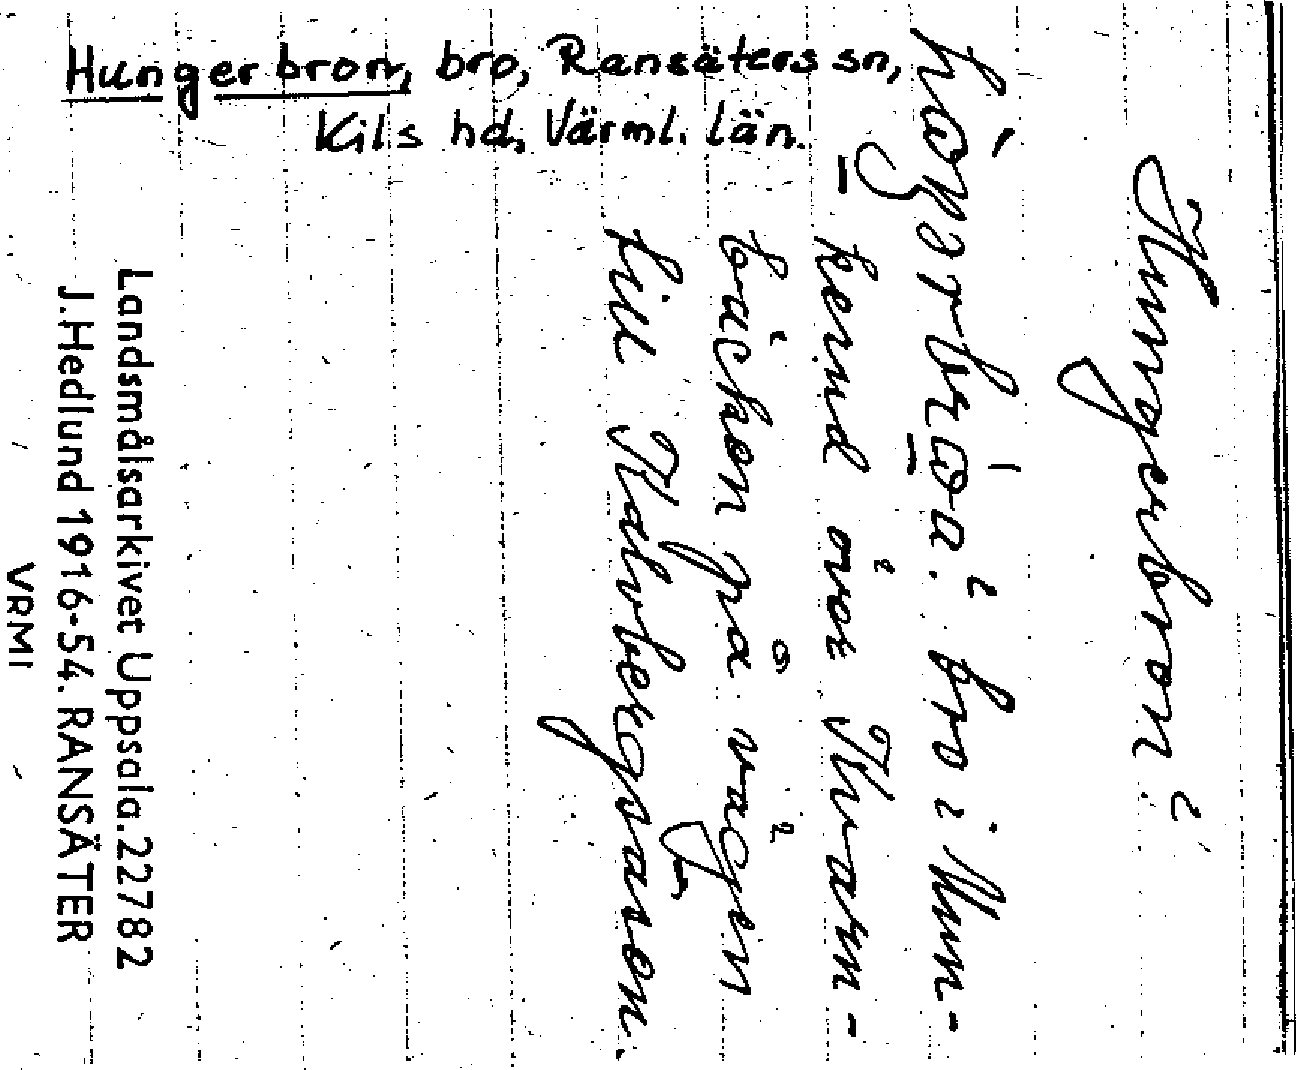 Hungerbron, bro, Ransäters sn,
Kils hd, Värml. län.
Hungerbron?
bro i Mun-
kerud över Thram-
bäcken på vägen
till
Landsmålsarkivet Uppsala. 22782
J. Hedlund 1916-54. RANSÄTER
VRMI